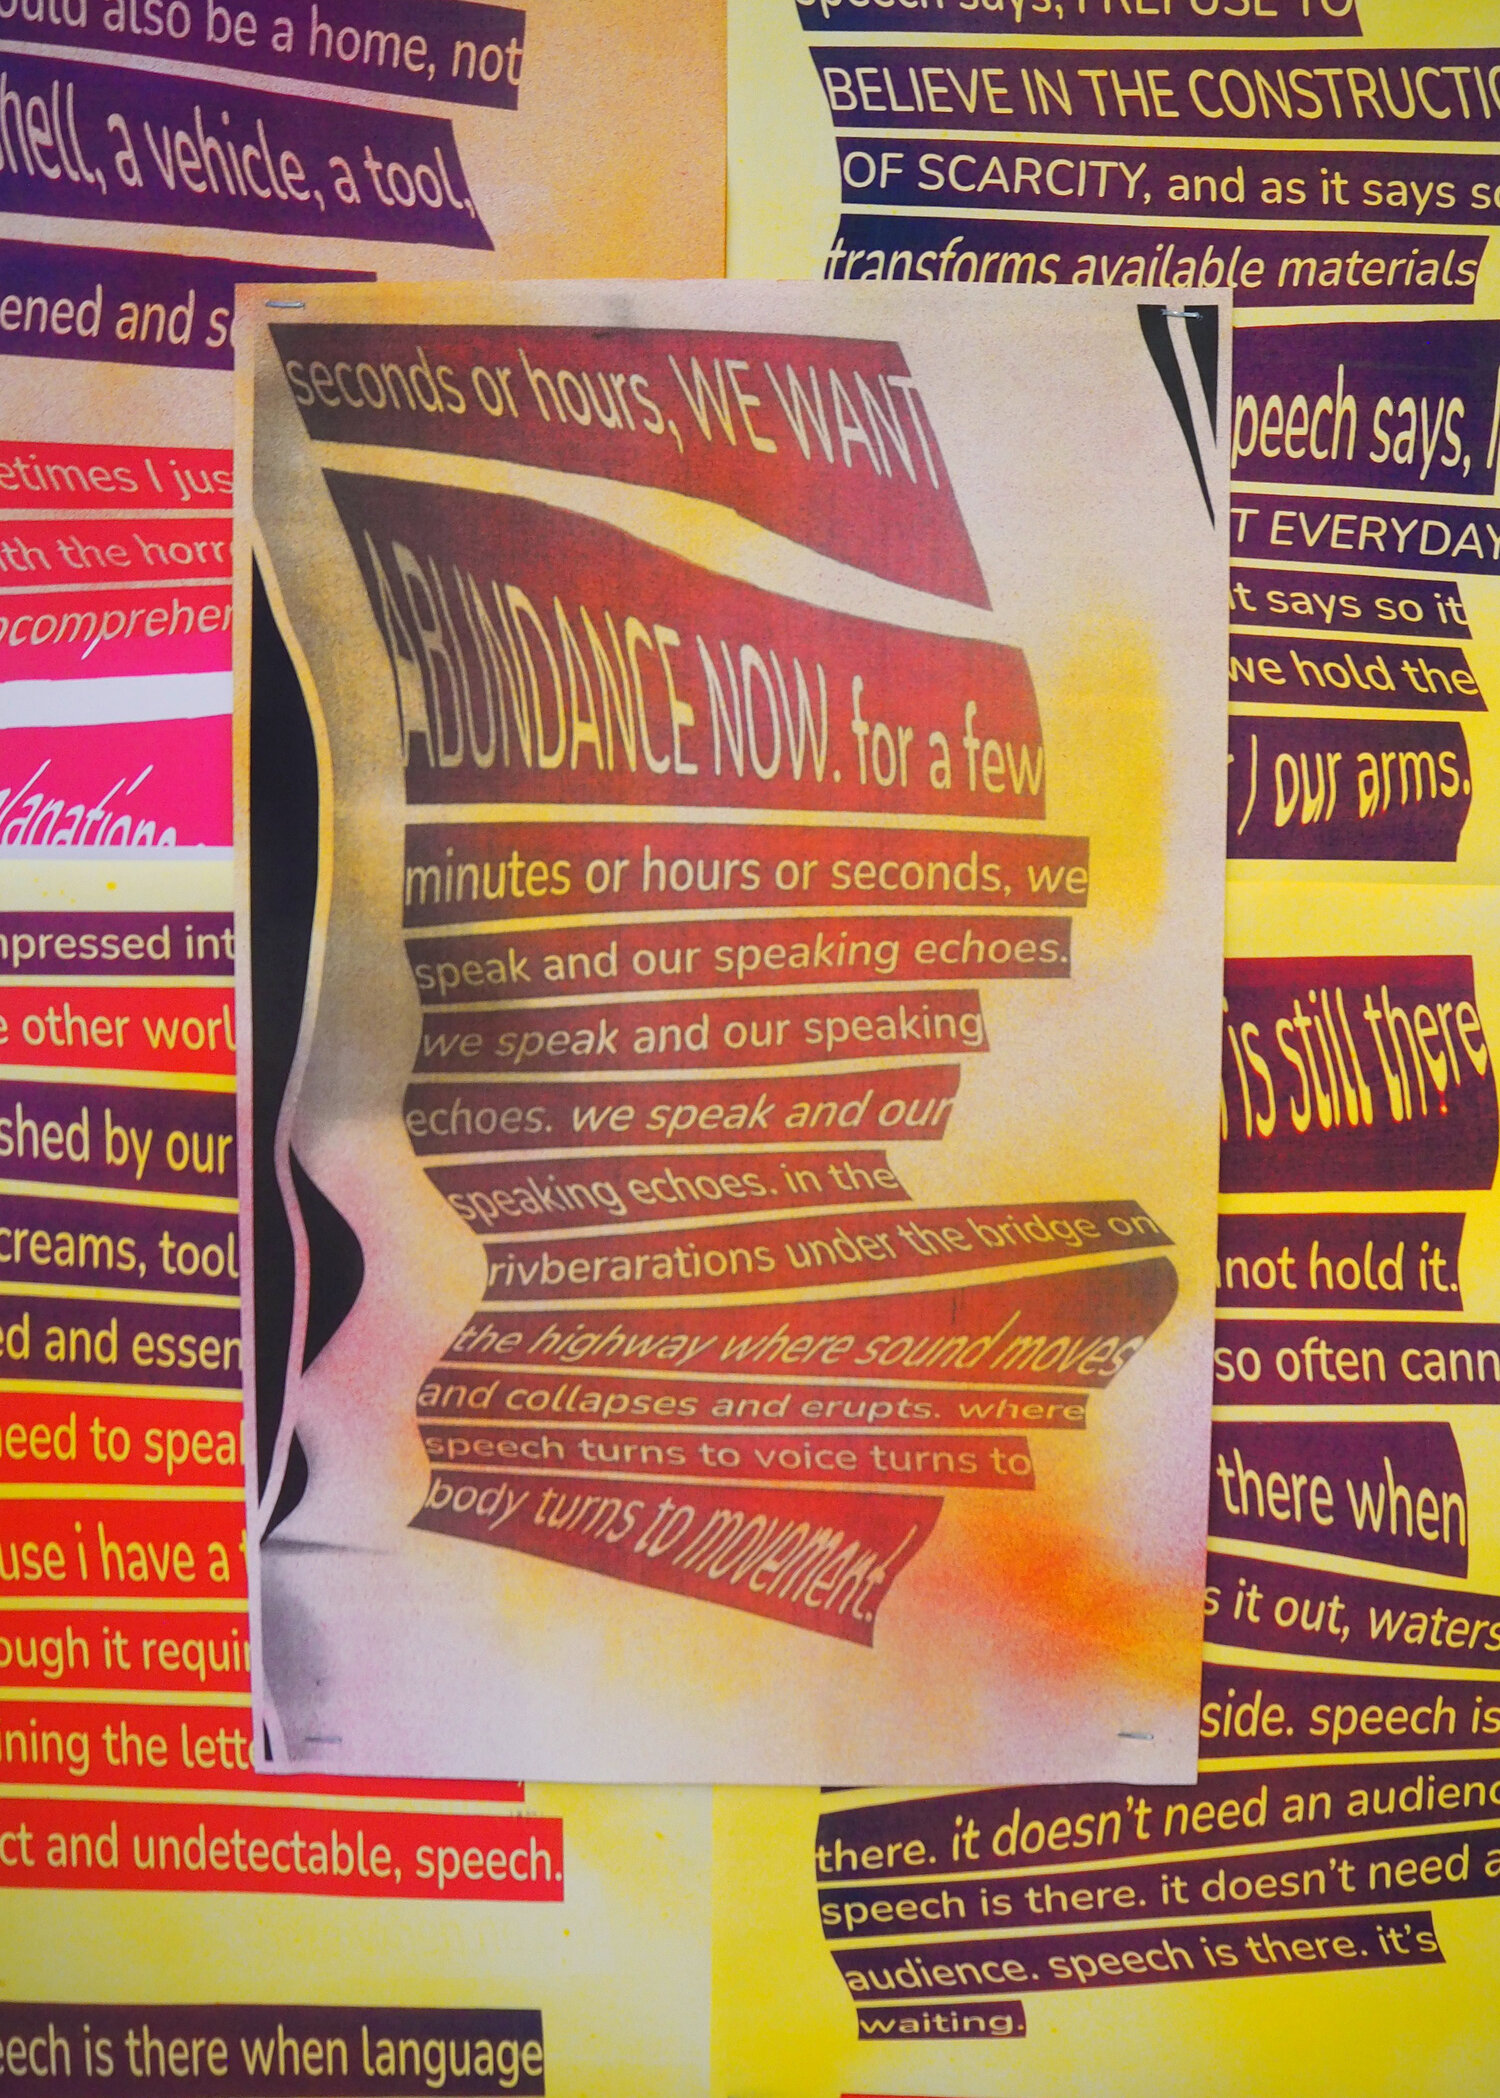 also be a home, not
a vehicle, a tool,
and
I
the
and undetectable, speech.
is there when language
other
by our
tool
and
to
use i have a
it
the
says, I REFUSE TO
BELIEVE IN THE
OF SCARCITY, and as it says
transforms available materials
says,
EVERYDAY
it says so it
we hold the
/ our arms.
seconds or hours, WE WANT
ABUNDANCE NOW. for a few
minutes or hours or seconds, we
speak and our speaking echoes.
we speak and our speaking
echoes. we speak and our
speaking echoes. in the
rivberarations under the bridge on
the highway where sound moves
and collapses and erupts. where
speech turns to voice turns to
body turns to movement.
is still there
not hold it.
so often
there when
it out,
side. speech is
there. it doesn't need an
speech is there. it doesn't need
audience. speech is there. it's
waiting.